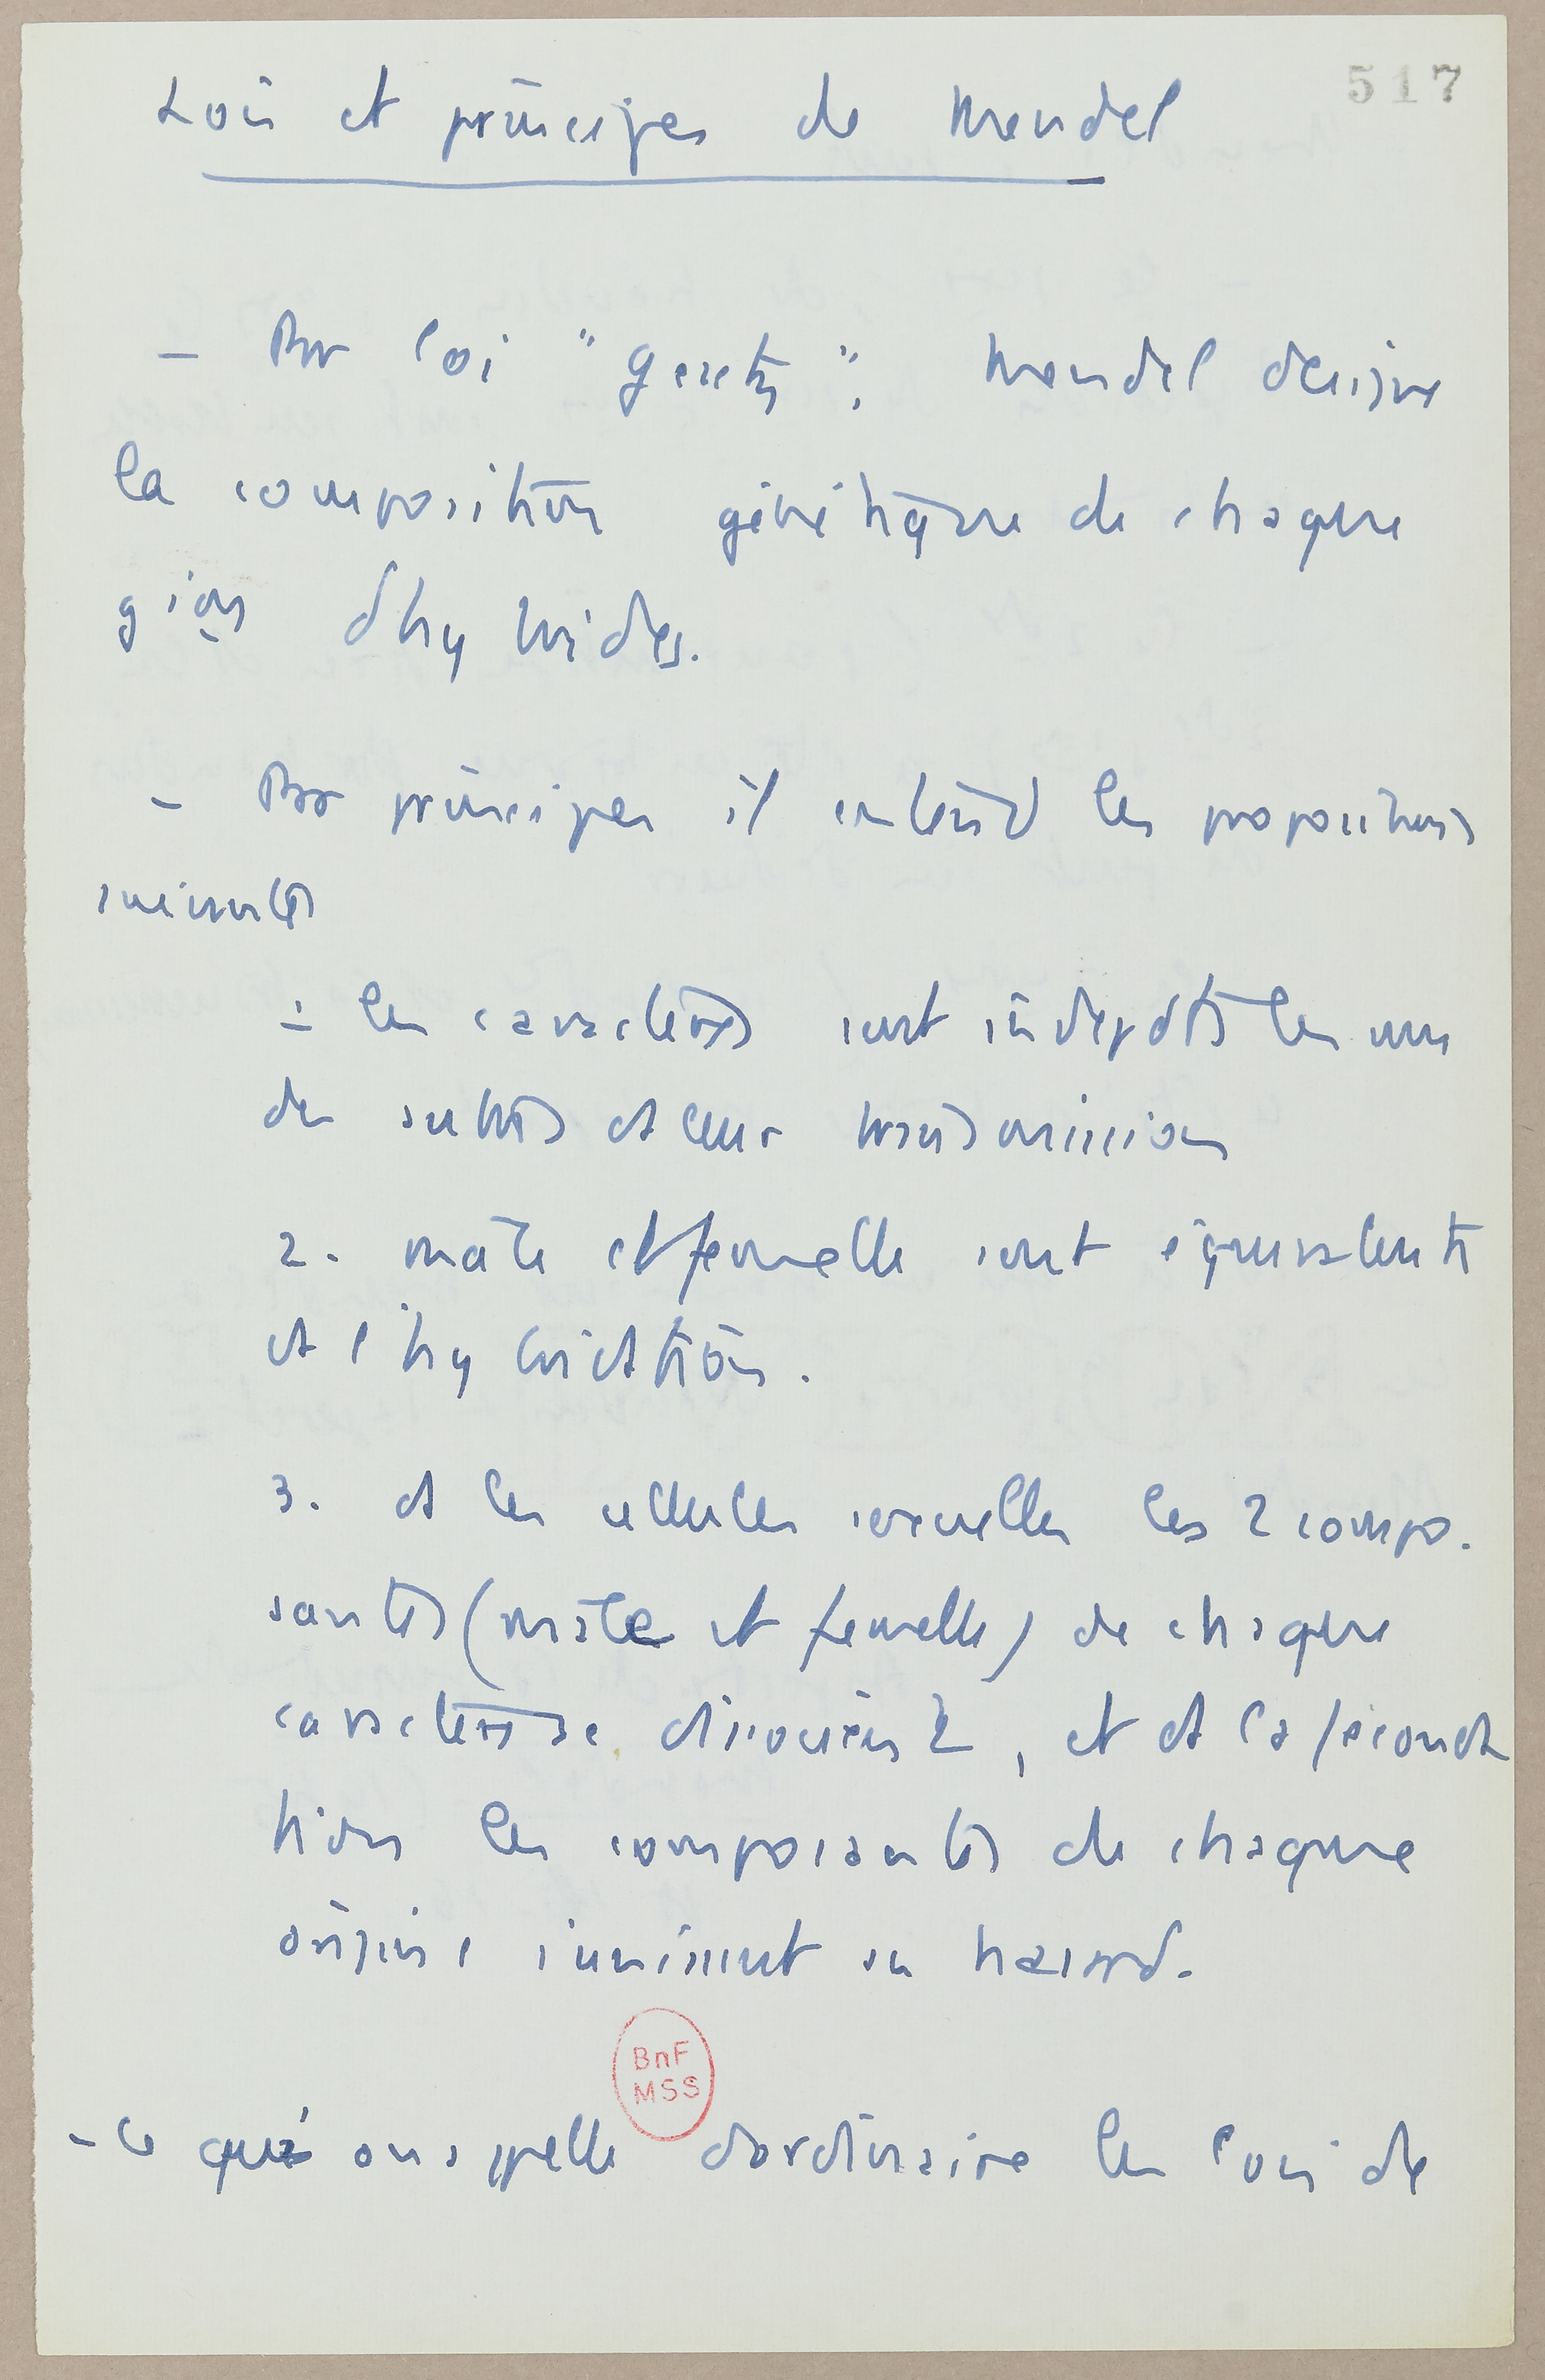 517
Lois et principes de Mendel
- Par loi " Gesetz ", Mendel désigne
la composition génétique de chaque
gion d'hybrides.
- Par principes il entend les propositions
suivantes
1- les caractères sont indepdts les uns
des autres ds leur transmission
2. mâle et femelle sont équivalents
ds l'hybridation.
3. ds les cellules sexuelles les 2 compo.
santes (mâle et femelle) de chaque
caractère se dissocient, et ds la féconda
tion les composantes de chaque
origine s'unissent au hasard.
BnF
MSS
- Ce qu'on appelle d'ordinaire les lois de